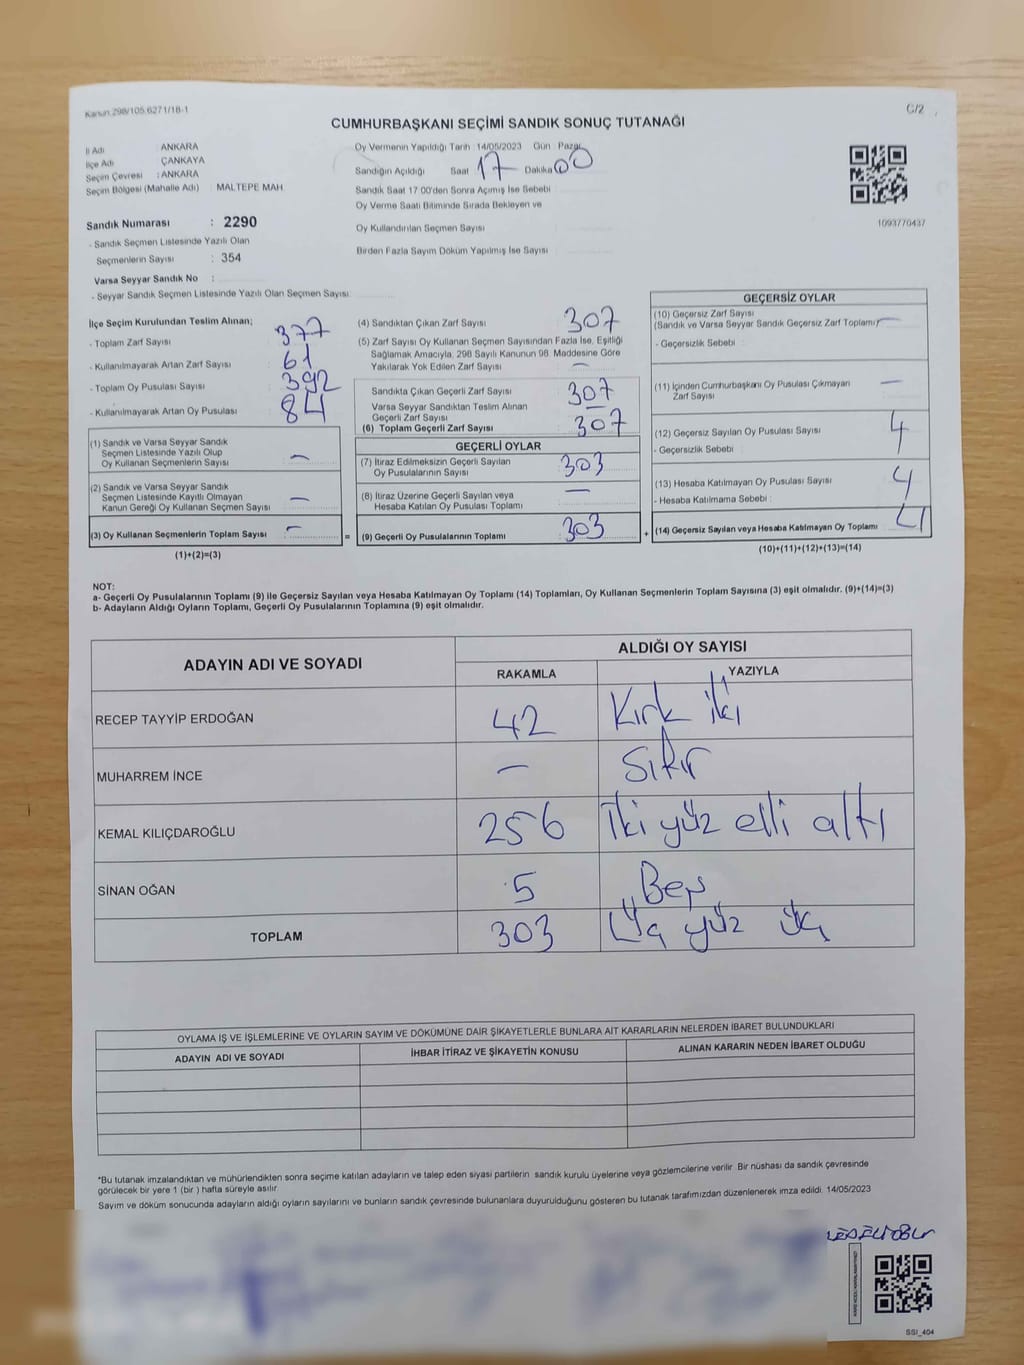 Kanun 298/105.6271/18-1
C/2
CUMHURBAŞKANI SEÇİMİ SANDIK SONUÇ TUTANAĞI
İl Adı : ANKARA
İlçe Adı : ÇANKAYA
Seçim Çevresi : ANKARA
Seçim Bölgesi (Mahalle Adı) : MALTEPE MAH
Sandık Numarası : 2290
- Sandık Seçmen Listesinde Yazılı Olan
Seçmenlerin Sayısı : 354
Varsa Seyyar Sandık No :
- Seyyar Sandık Seçmen Listesinde Yazılı Olan Seçmen Sayısı
Oy Vermenin Yapıldığı Tarih : 14/05/2023 Gün : Pazar
Sandığın Açıldığı Saat 17 Dakika 00
Sandık Saat 17 00'den Sonra Açımış İse Sebebi
Oy Verme Saati Bitiminde Sırada Bekleyen ve
Oy Kullandırılan Seçmen Sayısı
Birden Fazla Sayım Döküm Yapılmış İse Sayısı
1093770437
İlçe Seçim Kurulundan Teslim Alınan;
- Toplam Zarf Sayısı 377
- Kullanılmayarak Artan Zarf Sayısı 61
- Toplam Oy Pusulası Sayısı 392
- Kullanılmayarak Artan Oy Pusulası 84
(1) Sandık ve Varsa Seyyar Sandık
Seçmen Listesinde Yazılı Olup
Oy Kullanan Seçmenlerin Sayısı –
(2) Sandık ve Varsa Seyyar Sandık
Seçmen Listesinde Kayıtlı Olmayan
Kanun Gereği Oy Kullanan Seçmen Sayısı –
(3) Oy Kullanan Seçmenlerin Toplam Sayısı – =
(1)+(2)=(3)
(4) Sandıktan Çıkan Zarf Sayısı 307
(5) Zarf Sayısı Oy Kullanan Seçmen Sayısından Fazla İse, Eşitliği
Sağlamak Amacıyla, 298 Sayılı Kanunun 98. Maddesine Göre
Yakılarak Yok Edilen Zarf Sayısı –
Sandıkta Çıkan Geçerli Zarf Sayısı 307
Varsa Seyyar Sandıktan Teslim Alınan
Geçerli Zarf Sayısı –
(6) Toplam Geçerli Zarf Sayısı 307
GEÇERLİ OYLAR
(7) İtiraz Edilmeksizin Geçerli Sayılan
Oy Pusulalarının Sayısı 303
(8) İtiraz Üzerine Geçerli Sayılan veya
Hesaba Katılan Oy Pusulası Toplamı –
(9) Geçerli Oy Pusulalarının Toplamı 303 +
GEÇERSİZ OYLAR
(10) Geçersiz Zarf Sayısı
(Sandık ve Varsa Seyyar Sandık Geçersiz Zarf Toplamı) –
- Geçersizlik Sebebi :
(11) İçinden Cumhurbaşkanı Oy Pusulası Çıkmayan
Zarf Sayısı –
(12) Geçersiz Sayılan Oy Pusulası Sayısı 4
- Geçersizlik Sebebi
(13) Hesaba Katılmayan Oy Pusulası Sayısı 4
- Hesaba Katılmama Sebebi :
(14) Geçersiz Sayılan veya Hesaba Katılmayan Oy Toplamı 4
(10)+(11)+(12)+(13)=(14)
NOT:
a- Geçerli Oy Pusulalarının Toplamı (9) ile Geçersiz Sayılan veya Hesaba Katılmayan Oy Toplamı (14) Toplamları, Oy Kullanan Seçmenlerin Toplam Sayısına (3) eşit olmalıdır. (9)+(14)=(3)
b- Adayların Aldığı Oyların Toplamı, Geçerli Oy Pusulalarının Toplamına (9) eşit olmalıdır.
ADAYIN ADI VE SOYADI ALDIĞI OY SAYISI
RAKAMLA YAZIYLA
RECEP TAYYİP ERDOĞAN 42 Kırk iki
MUHARREM İNCE – Sıfır
KEMAL KILIÇDAROĞLU 256 İki yüz elli altı
SİNAN OĞAN 5 Beş
TOPLAM 303 Üç yüz üç
OYLAMA İŞ VE İŞLEMLERİNE VE OYLARIN SAYIM VE DÖKÜMÜNE DAİR ŞİKAYETLERLE BUNLARA AİT KARARLARIN NELERDEN İBARET BULUNDUKLARI
ADAYIN ADI VE SOYADI İHBAR İTİRAZ VE ŞİKAYETİN KONUSU ALINAN KARARIN NEDEN İBARET OLDUĞU
*Bu tutanak imzalandıktan ve mühürlendikten sonra seçime katılan adayların ve talep eden siyasi partilerin sandık kurulu üyelerine veya gözlemcilerine verilir. Bir nüshası da sandık çevresinde
görülecek bir yere 1 (bir ) hafta süreyle asılır.
Sayım ve döküm sonucunda adayların aldığı oyların sayılarını ve bunların sandık çevresinde bulunanlara duyurulduğunu gösteren bu tutanak tarafımızdan düzenlenerek imza edildi. 14/05/2023
SSI_404